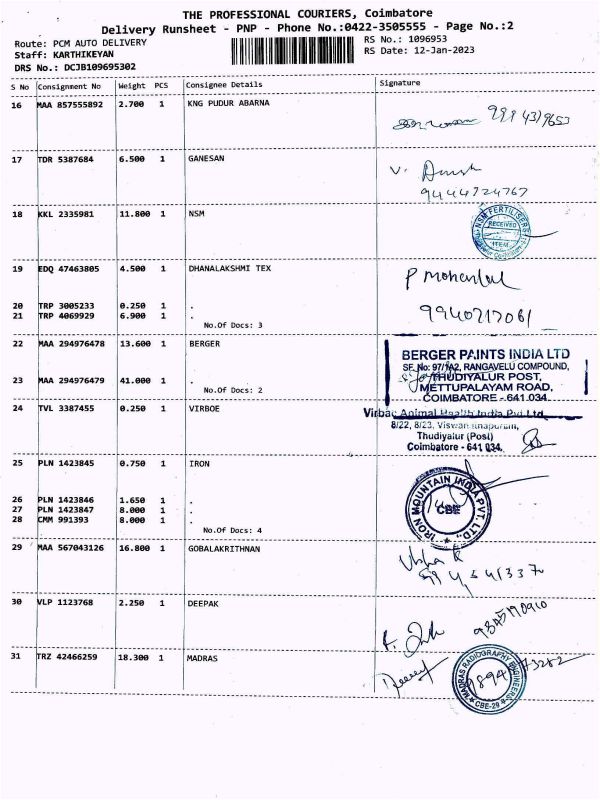 THE PROFESSIONAL COURIERS, Coimbatore
Delivery Runsheet - PNP - Phone No.:0422-3505555 - Page No.:2
Route: PCM AUTO DELIVERY
RS No.: 1096953
Staff: KARTHIKEYAN
RS Date: 12-Jan-2023
DRS No.: DCJB109695302
S No Consignment No Weight PCS Consignee Details Signature
16 MAA 857555892 2.700 1 KNG PUDUR ABARNA
17 TDR 5387684 6.500 1 GANESAN
V.
9444724767
18 KKL 2335981 11.800 1 NSM
NSM FERTILISERS
RECEIVED
ITEM
19 EDQ 47463805 4.500 1 DHANALAKSHMI TEX
P Mohanlal
20 TRP 3005233 0.250 1 .
21 TRP 4069929 6.900 1 .
9940217061
No.Of Docs: 3
22 MAA 294976478 13.600 1 BERGER
BERGER PAINTS INDIA LTD
SF. No: 97/1A2, RANGAVELU COMPOUND,
THUDIYALUR POST,
METTUPALAYAM ROAD,
COIMBATORE - 641 034.
23 MAA 294976479 41.000 1 .
No.Of Docs: 2
24 TVL 3387455 0.250 1 VIRBOE
Virbac Animal Health India Pvt Ltd
8/22, 8/23, Viswanathapuram,
Thudiyalur (Post)
Coimbatore - 641 034.
25 PLN 1423845 0.750 1 IRON
IRON MOUNTAIN INDIA PVT. LTD.
CBE
26 PLN 1423846 1.650 1 .
27 PLN 1423847 8.000 1 .
28 CMM 991393 8.000 1 .
No.Of Docs: 4
29 MAA 567043126 16.800 1 GOBALAKRITHNAN
Usha R
30 VLP 1123768 2.250 1 DEEPAK
31 TRZ 42466259 18.300 1 MADRAS
MADRAS RADIOGRAPHY ENGINEERS
CBE-29